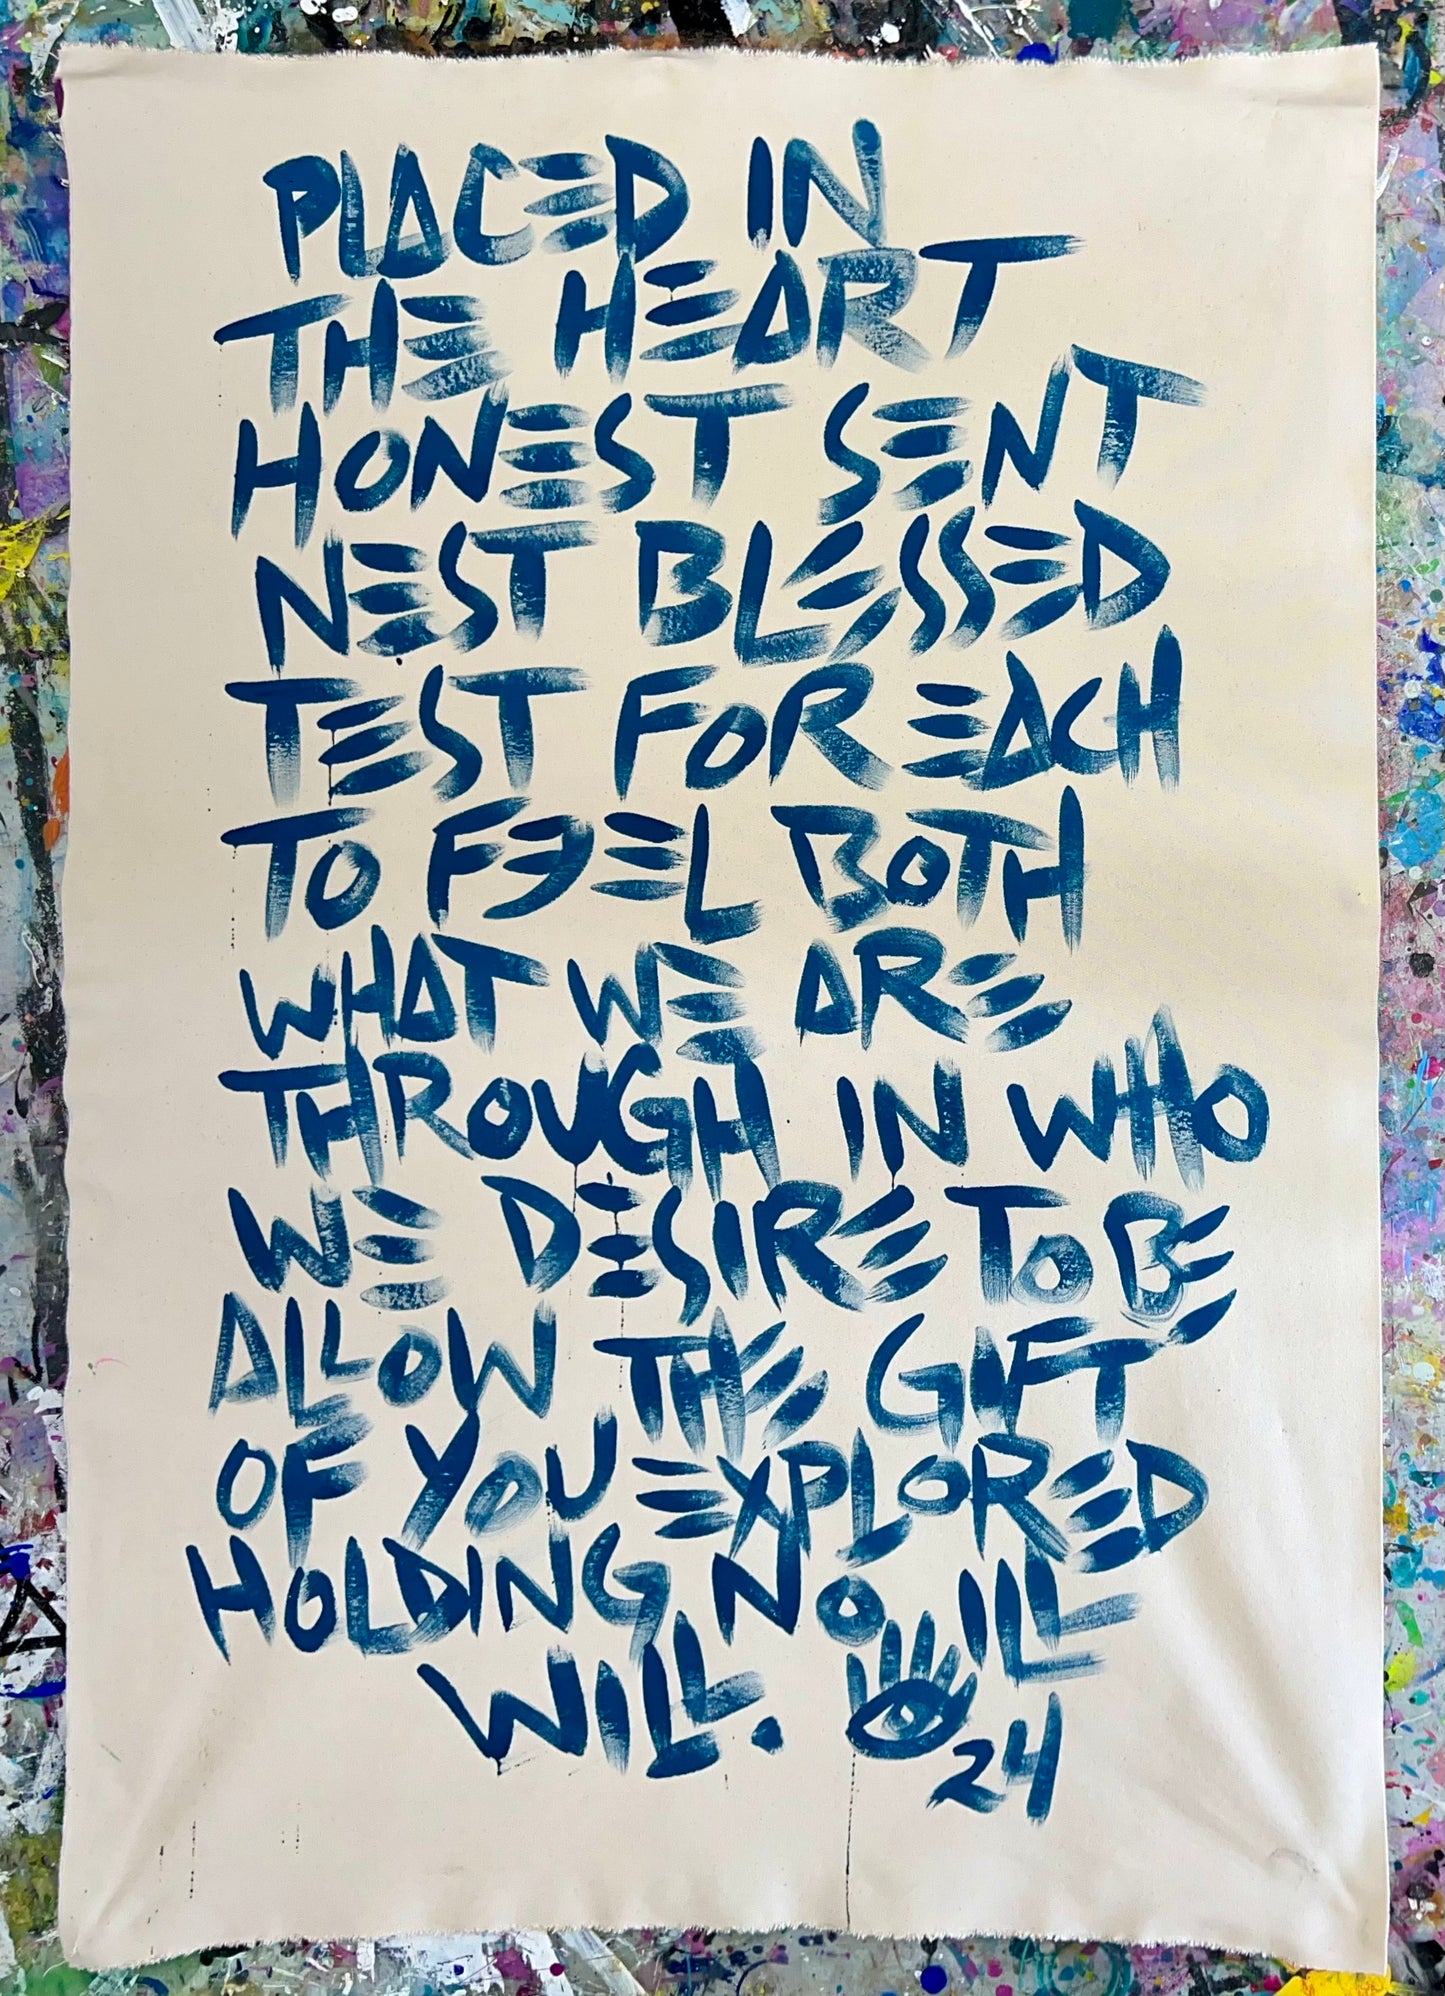 PLACED IN
THE HEART
HONEST SENT
NEST BLESSED
TEST FOR EACH
TO FEEL BOTH
WHAT WE ARE
THROUGH IN WHO
WE DESIRE TO BE
ALLOW THE GIFT
OF YOU EXPLORED
HOLDING NO ILL
WILL. 24